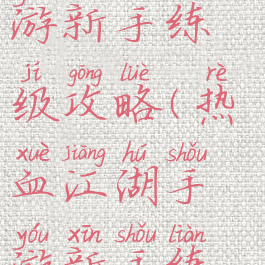 游新手练
jí gōng lüè rè
级攻略(热
xuè jiāng hú shǒu
血江湖手
yóu xīn shǒu liàn
游新手练